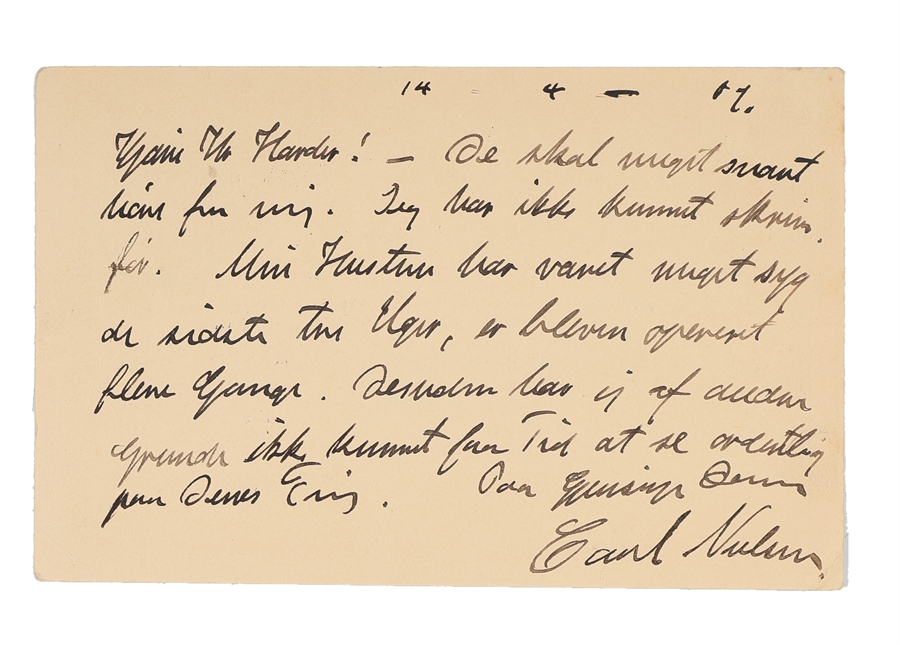 14 - 4 — 07.
Kjære Hr Harder! — De skal meget snart
høre fra mig. Jeg har ikke kunnet skrive
før. Min Hustru har været meget syg
de sidste tre Uger, er bleven opereret
flere Gange. Desuden har jeg af andre
Grunde ikke kunnet faa Tid at se ordentlig
paa Deres Ting. Paa Gensyn Deres
Carl Nielsen.